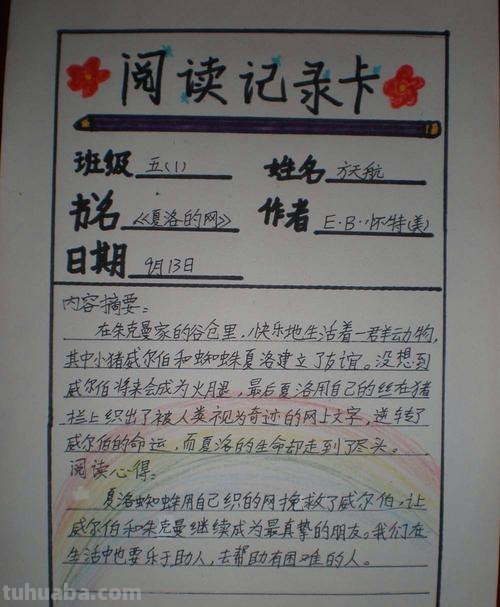 阅读记录卡
班级 五(1) 姓名 方天航
书名 《夏洛的网》 作者 E·B·怀特(美)
日期 9月13日
内容摘要:
在朱克曼家的谷仓里,快乐地生活着一群动物,
其中小猪威尔伯和蜘蛛夏洛建立了友谊。没想到
威尔伯将来会成为火腿,最后夏洛用自己的丝在猪
栏上织出了被人类视为奇迹的网上文字,逆转了
威尔伯的命运,而夏洛的生命却走到了尽头。
阅读心得:
夏洛蜘蛛用自己织的网挽救了威尔伯,让
威尔伯和朱克曼继续成为最真挚的朋友。我们在
生活中也要乐于助人,去帮助有困难的人。
tuhuaba.com